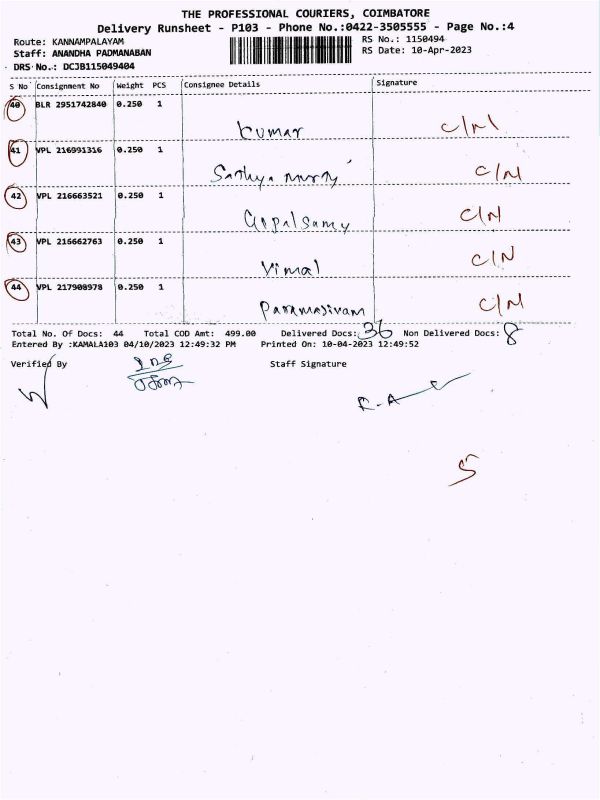 THE PROFESSIONAL COURIERS, COIMBATORE
Delivery Runsheet - P103 - Phone No.:0422-3505555 - Page No.:4
Route: KANNAMPALAYAM RS No.: 1150494
Staff: ANANDHA PADMANABAN RS Date: 10-Apr-2023
DRS No.: DCJB115049404
S No Consignment No Weight PCS Consignee Details Signature
40 BLR 2951742840 0.250 1
Kumar C/N
41 VPL 216991316 0.250 1
Sathya C/N
42 VPL 216663521 0.250 1
Gopalsamy C/N
43 VPL 216662763 0.250 1
Vimal C/N
44 VPL 217908978 0.250 1
Paramasivam C/N
Total No. Of Docs: 44 Total COD Amt: 499.00 Delivered Docs: 36 Non Delivered Docs: 8
Entered By :KAMALA103 04/10/2023 12:49:32 PM Printed On: 10-04-2023 12:49:52
Verified By Staff Signature
R-A
5